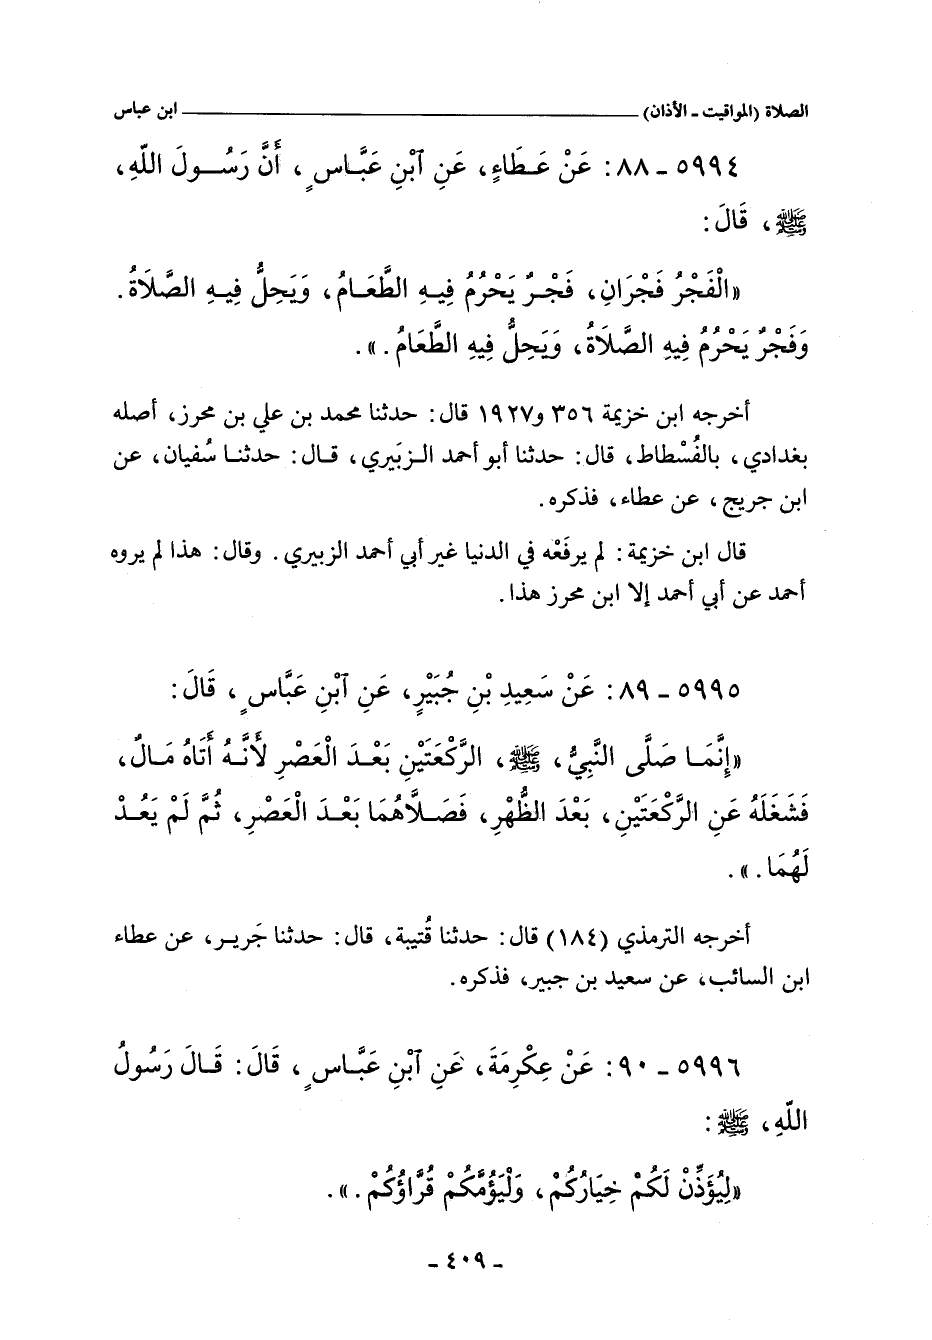 الصلاة (المواقيت ـ الأذان) ــــــــ ابن عباس
٥٩٩٤ ـ ٨٨: عَنْ عَطَاءٍ، عَنِ ٱبْنِ عَبَّاسٍ، أَنَّ رَسُولَ اللّهِ،
ﷺ، قَالَ:
«الْفَجْرُ فَجْرَانِ، فَجْرٌ يَحْرُمُ فِيهِ الطَّعَامُ، وَيَحِلُّ فِيهِ الصَّلَاةُ.
وَفَجْرٌ يَحْرُمُ فِيهِ الصَّلَاةُ، وَيَحِلُّ فِيهِ الطَّعَامُ.».
أخرجه ابن خزيمة ٣٥٦ و١٩٢٧ قال: حدثنا محمد بن علي بن محرز، أصله
بغدادي، بالفُسْطاط، قال: حدثنا أبو أحمد الزبَيري، قال: حدثنا سُفيان، عن
ابن جريج، عن عطاء، فذكره.
قال ابن خزيمة: لم يرفَعْه في الدنيا غير أبي أحمد الزبيري. وقال: هذا لم يروه
أحمد عن أبي أحمد إلا ابن محرز هذا.
٥٩٩٥ ـ ٨٩: عَنْ سَعِيدِ بْنِ جُبَيْرٍ، عَنِ ٱبْنِ عَبَّاسٍ، قَالَ:
«إِنَّمَا صَلَّى النَّبِيُّ، ﷺ، الرَّكْعَتَيْنِ بَعْدَ الْعَصْرِ لأَنَّهُ أَتَاهُ مَالٌ،
فَشَغَلَهُ عَنِ الرَّكْعَتَيْنِ، بَعْدَ الظُّهْرِ، فَصَلاَّهُمَا بَعْدَ الْعَصْرِ، ثُمَّ لَمْ يَعُدْ
لَهُمَا.».
أخرجه الترمذي (١٨٤) قال: حدثنا قُتيبة، قال: حدثنا جَرير، عن عطاء
ابن السائب، عن سعيد بن جبير، فذكره.
٥٩٩٦ ـ ٩٠: عَنْ عِكْرِمَةَ، عَنِ ٱبْنِ عَبَّاسٍ، قَالَ: قَالَ رَسُولُ
اللّهِ، ﷺ:
«لِيُؤَذِّنْ لَكُمْ خِيَارُكُمْ، وَلْيَؤُمَّكُمْ قُرَّاؤُكُمْ.».
ـ ٤٠٩ ـ